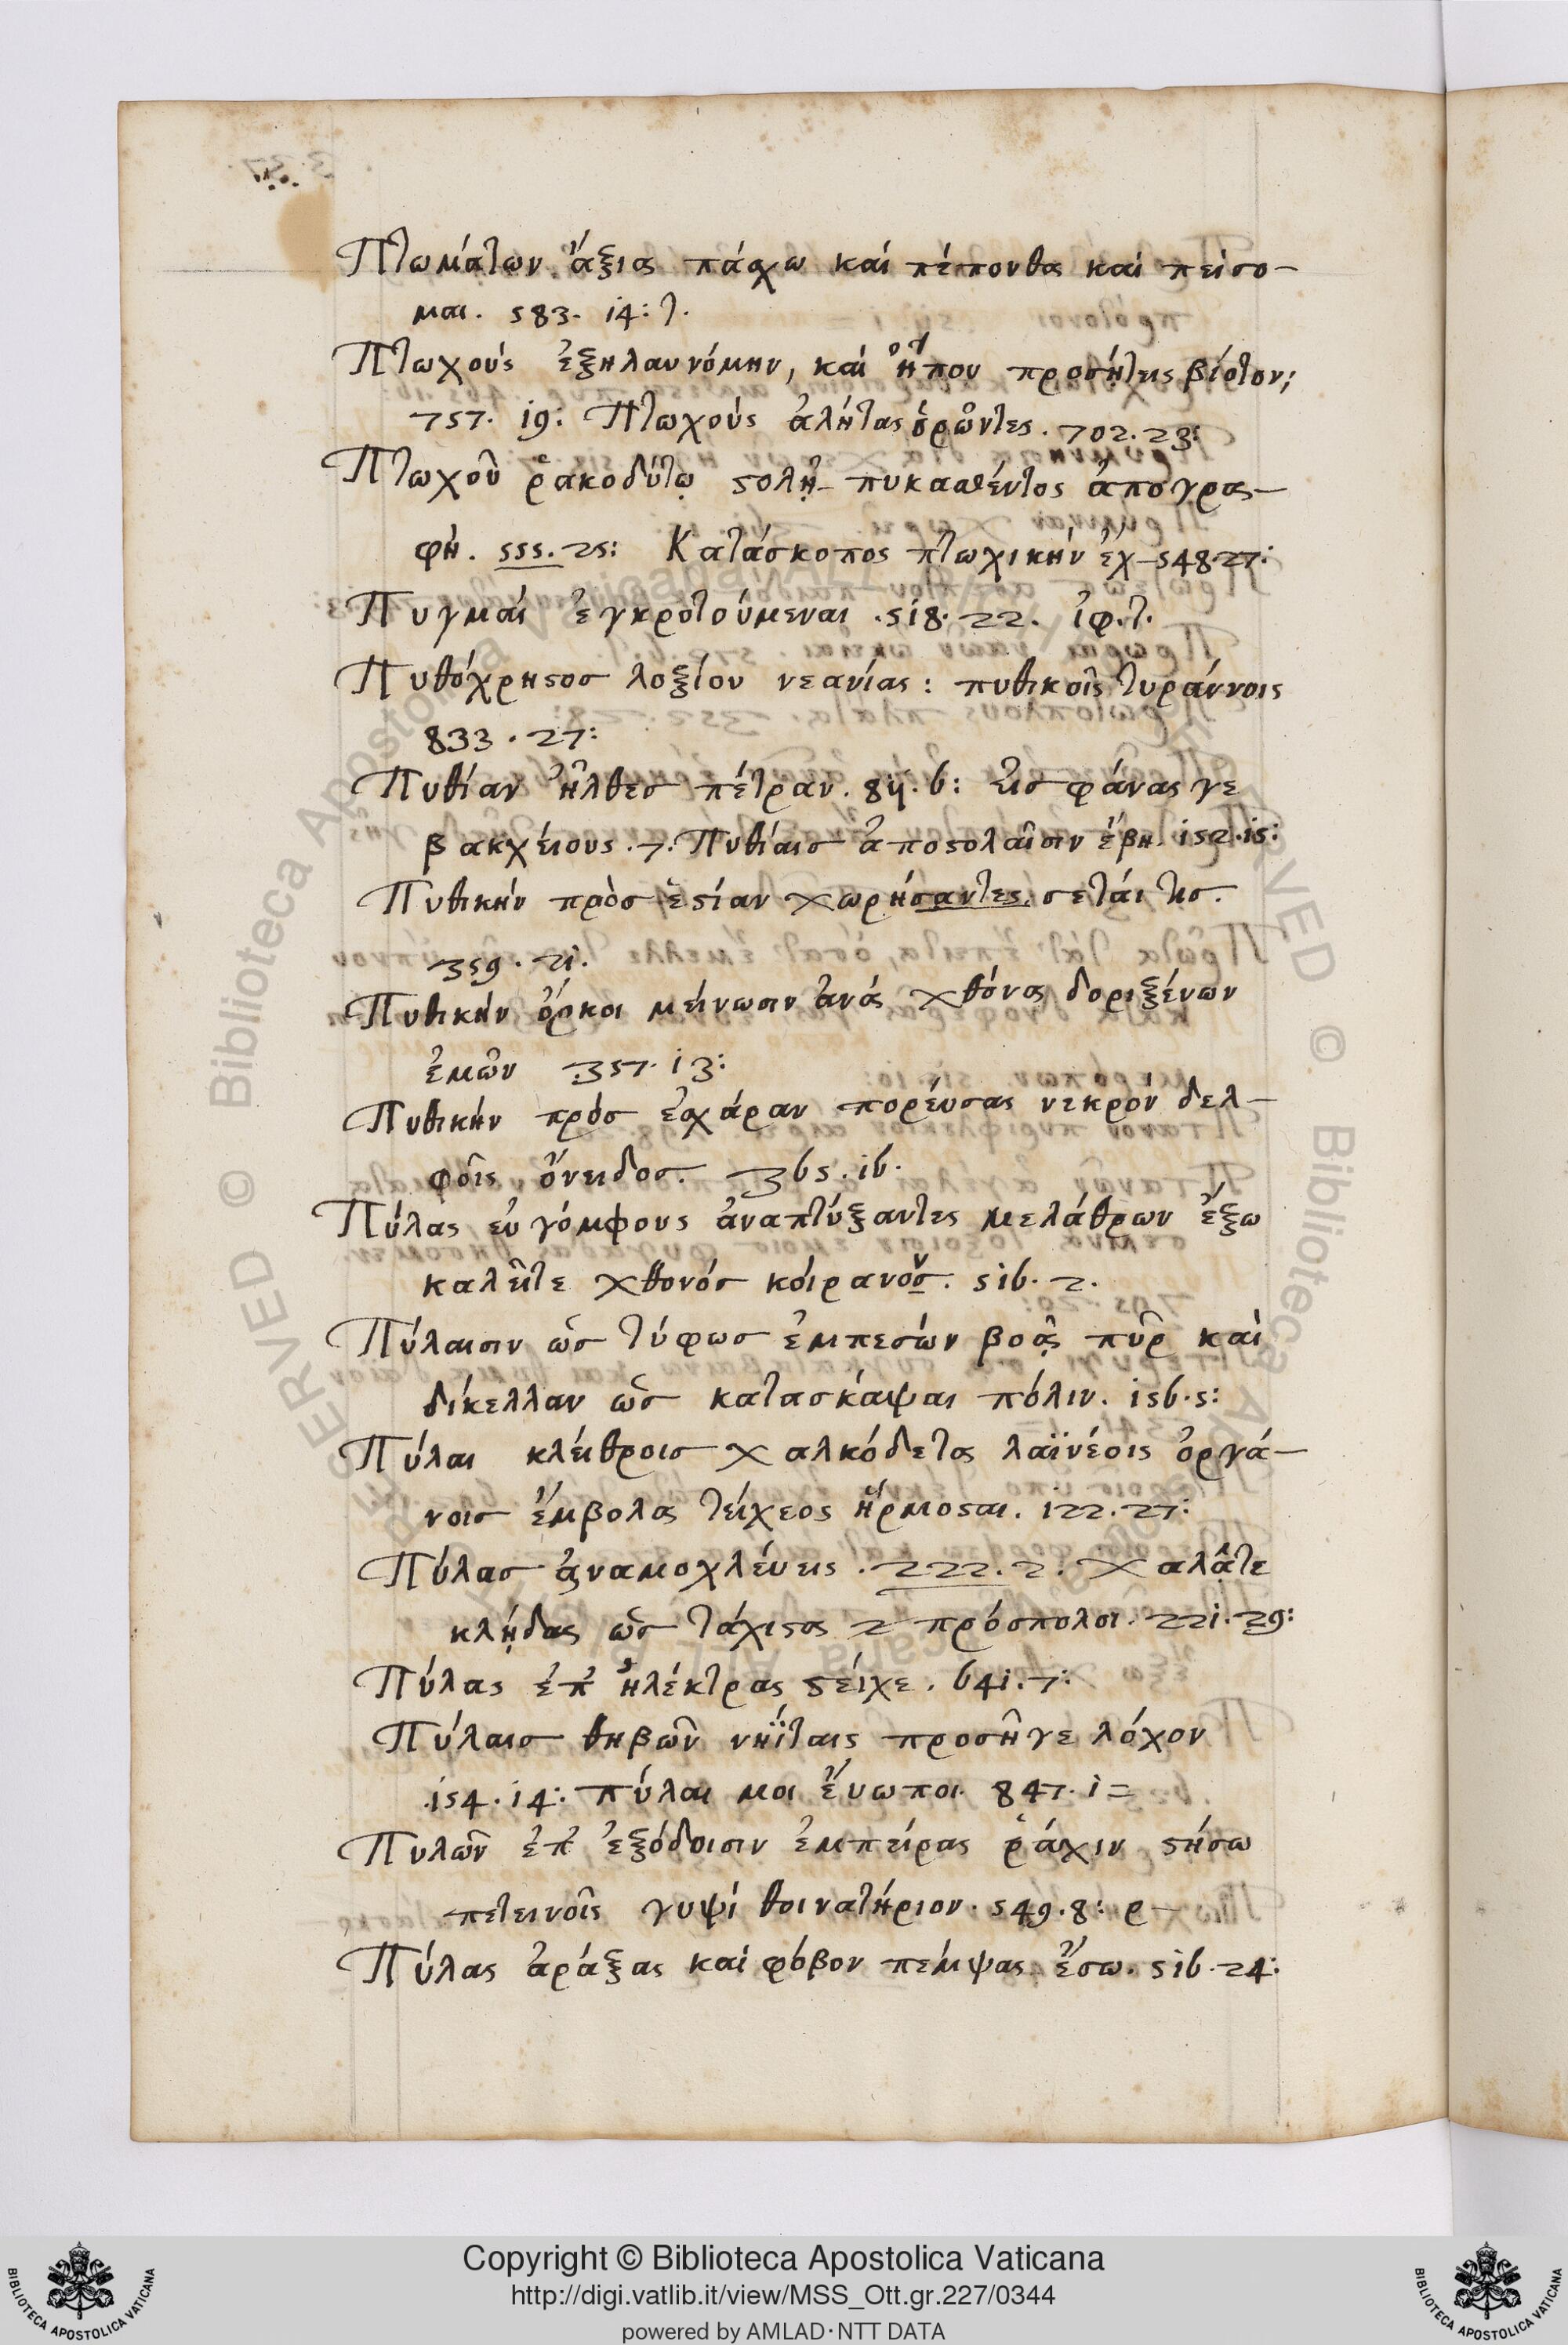 Πτωμάτων ἄξια πάσχω καὶ πέπονθα καὶ πείσο-
μαι. 583. 14: τ.
Πτωχοὺς ἐξηλαυνόμην, καὶ ἤπου προσῄτεις βίοτον;
757. 19: Πτωχοὺς ἀλήτας ὁρῶντες. 702. 23:
Πτωχοῦ ῥακοδύτῳ στολῇ πυκασθέντος ἀπογρα-
φή. 555. 25: Κατάσκοπος πτωχικὴν ἔχ- 548. 27:
Πυγμαὶ ἐγκροτούμεναι. 518. 22. ἰφ. τ.
Πυθόχρηστος λοξίου νεανίας: πυθικοῖς τυράννοις
833. 27:
Πυθίαν ἦλθες πέτραν. 811. 6: εἰς φάνας γε
βακχείους. 7. Πυθίαις ἀποστολαῖσιν ἔβη. 152. 15:
Πυθικὴν πρὸς ἑστίαν χωρήσαντες σεταί τις.
359. 21.
Πυθικὴν ὅρκοι μείνωσιν ἀνὰ χθόνα δοριξένων
ἐμῶν 357. 13:
Πυθικὴν πρὸς ἐσχάραν πορεύσας νεκρὸν δελ-
φοῖς ὄνειδος. 365. 16.
Πύλας εὐγόμφους ἀναπτύξαντες μελάθρων ἔξω
καλεῖτε χθονὸς κοίρανος. 516. 2.
Πύλαισιν ὡς τύφως ἐμπεσὼν βοᾷ πῦρ καὶ
δίκελλαν ὡς κατασκάψαι πόλιν. 156. 5:
Πύλαι κλείθροις χαλκόδετα λαϊνέοις ὀργά-
νοις ἔμβολα τείχεος ἥρμοσται. 122. 27:
Πύλας ἀναμοχλεύεις. 222. 2. Χαλᾶτε
κλῇδας ὡς τάχιστα πρόσπολοι. 221. 29:
Πύλας ἐπ' ἠλέκτρας στεῖχε. 641. 7:
Πύλαις θηβῶν νηΐταις προσῆγε λόχον
154. 14: πύλαι μοι ἔνωποι. 847. 1=
Πυλῶν ἐπ' ἐξόδοισιν ἐμπείρας ῥάχιν στήσω
πετεινοῖς γυψὶ θοινατήριον. 549. 8: ρ-
Πύλας ἀράξας καὶ φόβον πέμψας ἔσω. 516. 24:
Copyright © Biblioteca Apostolica Vaticana
http://digi.vatlib.it/view/MSS_Ott.gr.227/0344
powered by AMLAD·NTT DATA